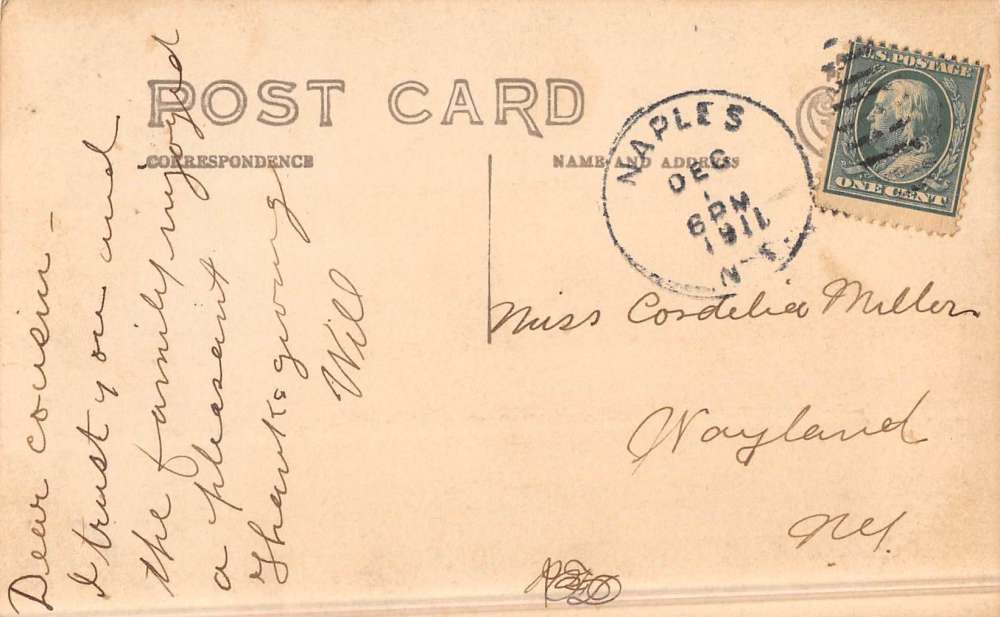 POST CARD
CORRESPONDENCE
NAME AND ADDRESS
U.S. POSTAGE
ONE CENT
NAPLES
DEC
1
6 PM
1911
N.Y.
Dear cousin -
I trust you and
the family enjoyed
a pleasant
Thanksgiving
Will
Miss Cordelia Miller
Wayland
N.Y.